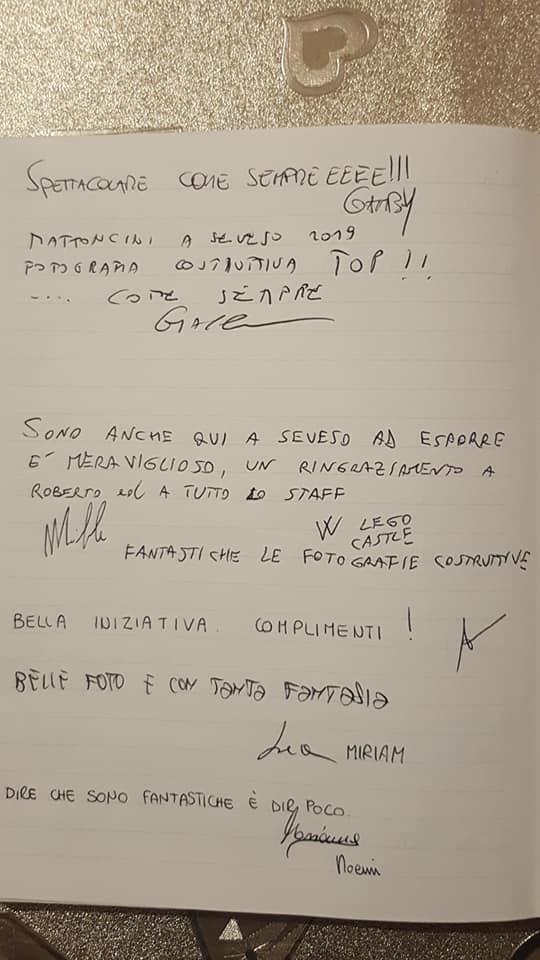 SPETTACOLARE COME SEMPRE EEEE!!!
GABBY
MATTONCINI A SEVESO 2019
FOTOGRAFIA COSTRUTTIVA TOP!!
.... COME SEMPRE
SONO ANCHE QUI A SEVESO AD ESPORRE
E' MERAVIGLIOSO, UN RINGRAZIAMENTO A
ROBERTO ed A TUTTO LO STAFF
W LEGO
CASTLE
FANTASTICHE LE FOTOGRAFIE COSTRUTTIVE
BELLA INIZIATIVA. COMPLIMENTI!
BELLE FOTO E CON TANTA FANTASIA
MIRIAM
DIRE CHE SONO FANTASTICHE È DIR POCO.
Noemi